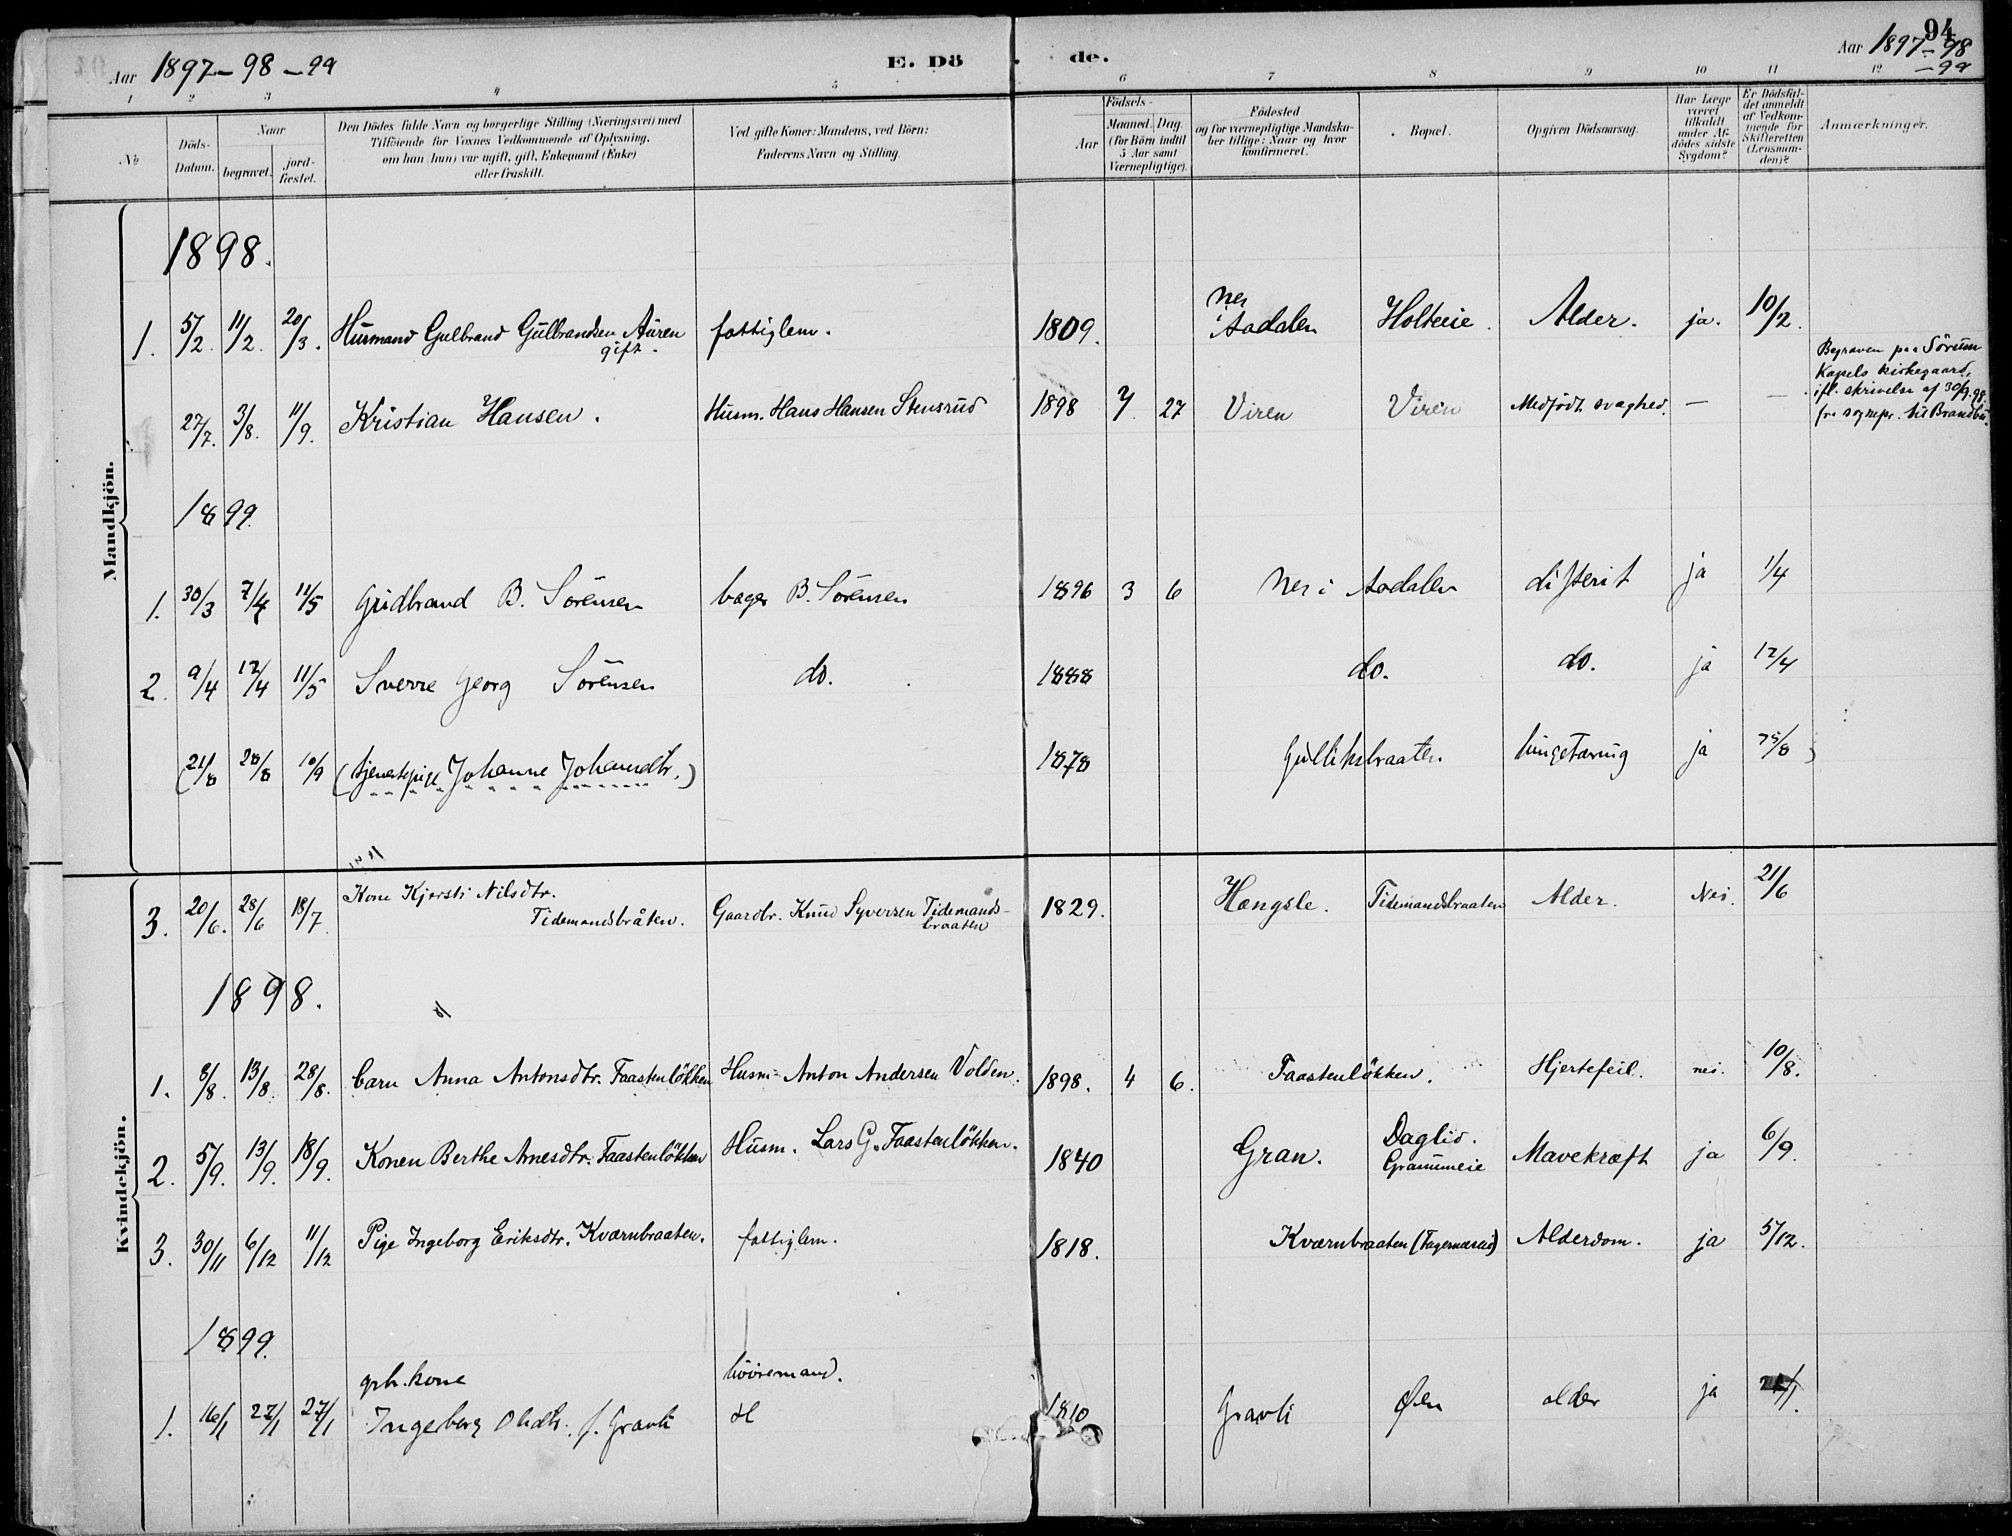 94
Aar 1897-98-99
E. Dö de.
Aar 1897-98
-99
1 2 3 4 5 6 7 8 9 10 11 12
No
Döds-Datum.
Naar
begravet.
jord-fæstet.
Den Dödes fulde Navn og borgerlige Stilling (Næringsvei) med
Tilföiende for Voxnes Vedkommende af Oplysning,
om han (hun) var ugift, gift, Enkemand (Enke)
eller fraskilt.
Ved gifte Koner: Mandens, ved Börn:
Faderens Navn og Stilling.
Födsels-
Aar
Maaned. Dag.
(for Börn indtil
5 Aar samt
Værnepligtige).
Födested
og for værnepligtige Mandska-
ber tillige: Naar og hvor
konfirmeret.
Bopæl.
Opgiven Dödsaarsag.
Har Læge
været
tilkaldt
under Af-
dödes sidste
Sygdom?
Er Dödsfal-
det anmeldt
af Vedkom-
mende for
Skifteretten
(Lensman-
den)?
Anmærkninger.
Mandkjön.
1898.
1. 5/2. 11/2. 20/3. Husmand Gulbrand Gulbrandsen Auren gift. fattiglem. 1809. Nes i Aadalen Holteeie. Alder. ja. 10/2.
27/7. 3/8. 11/9. Kristian Hansen. Husm. Hans Hansen Stensrud 1898 7 27 Viren Viren Medfödt svaghed. — —
Begraven paa Sörum
Kapels kirkegaard,
ifl. skrivelse af 30/9.98.
fra sognepr. til Brandbu.
1899.
1. 30/3 7/4 11/5 Gudbrand B. Sörensen bager B. Sörensen 1896 3 6 Nes i Aadalen difterit ja 1/4
2. 9/4 12/4 11/5 Sverre Georg Sörensen do. 1888 do. do. ja 12/4
(21/8 28/8 10/9 (tjenestepige Johanne Johansdtr.) 1878 Gulliksbraaten. lungetæring ja 25/8)
Kvindekjön.
3. 20/6. 28/6 18/7 Kone Kjersti Nilsdtr.
Tidemandsbråten. Gaardbr. Knud Syversen Tidemands-
braaten 1829. Hængsle. Tidemandsbraaten Alder. Nei. 21/6
1898.
1. 8/8. 13/8. 28/8. barn Anna Antonsdtr. Faastenlökken Husm. Anton Andersen Volden. 1898. 4 6. Faastenlökken. Hjertefeil. nei. 10/8.
2. 5/9. 13/9. 18/9. Konen Berthe Arnesdtr. Faastenlökken Husm. Lars G. Faastenlökken. 1840 Gran. Daglid.
Grammeie Mavekræft ja 6/9.
3. 30/11 6/12 11/12 Pige Ingeborg Eriksdtr. Kværnbraaten. fattiglem. 1818. Kværnbraaten Alderdom. ja 5/12.
1899.
grb. kone
1. 16/1 27/1 27/1 Ingeborg Olsdtr. f. Gravli 1810 Gravli Öen alder ja